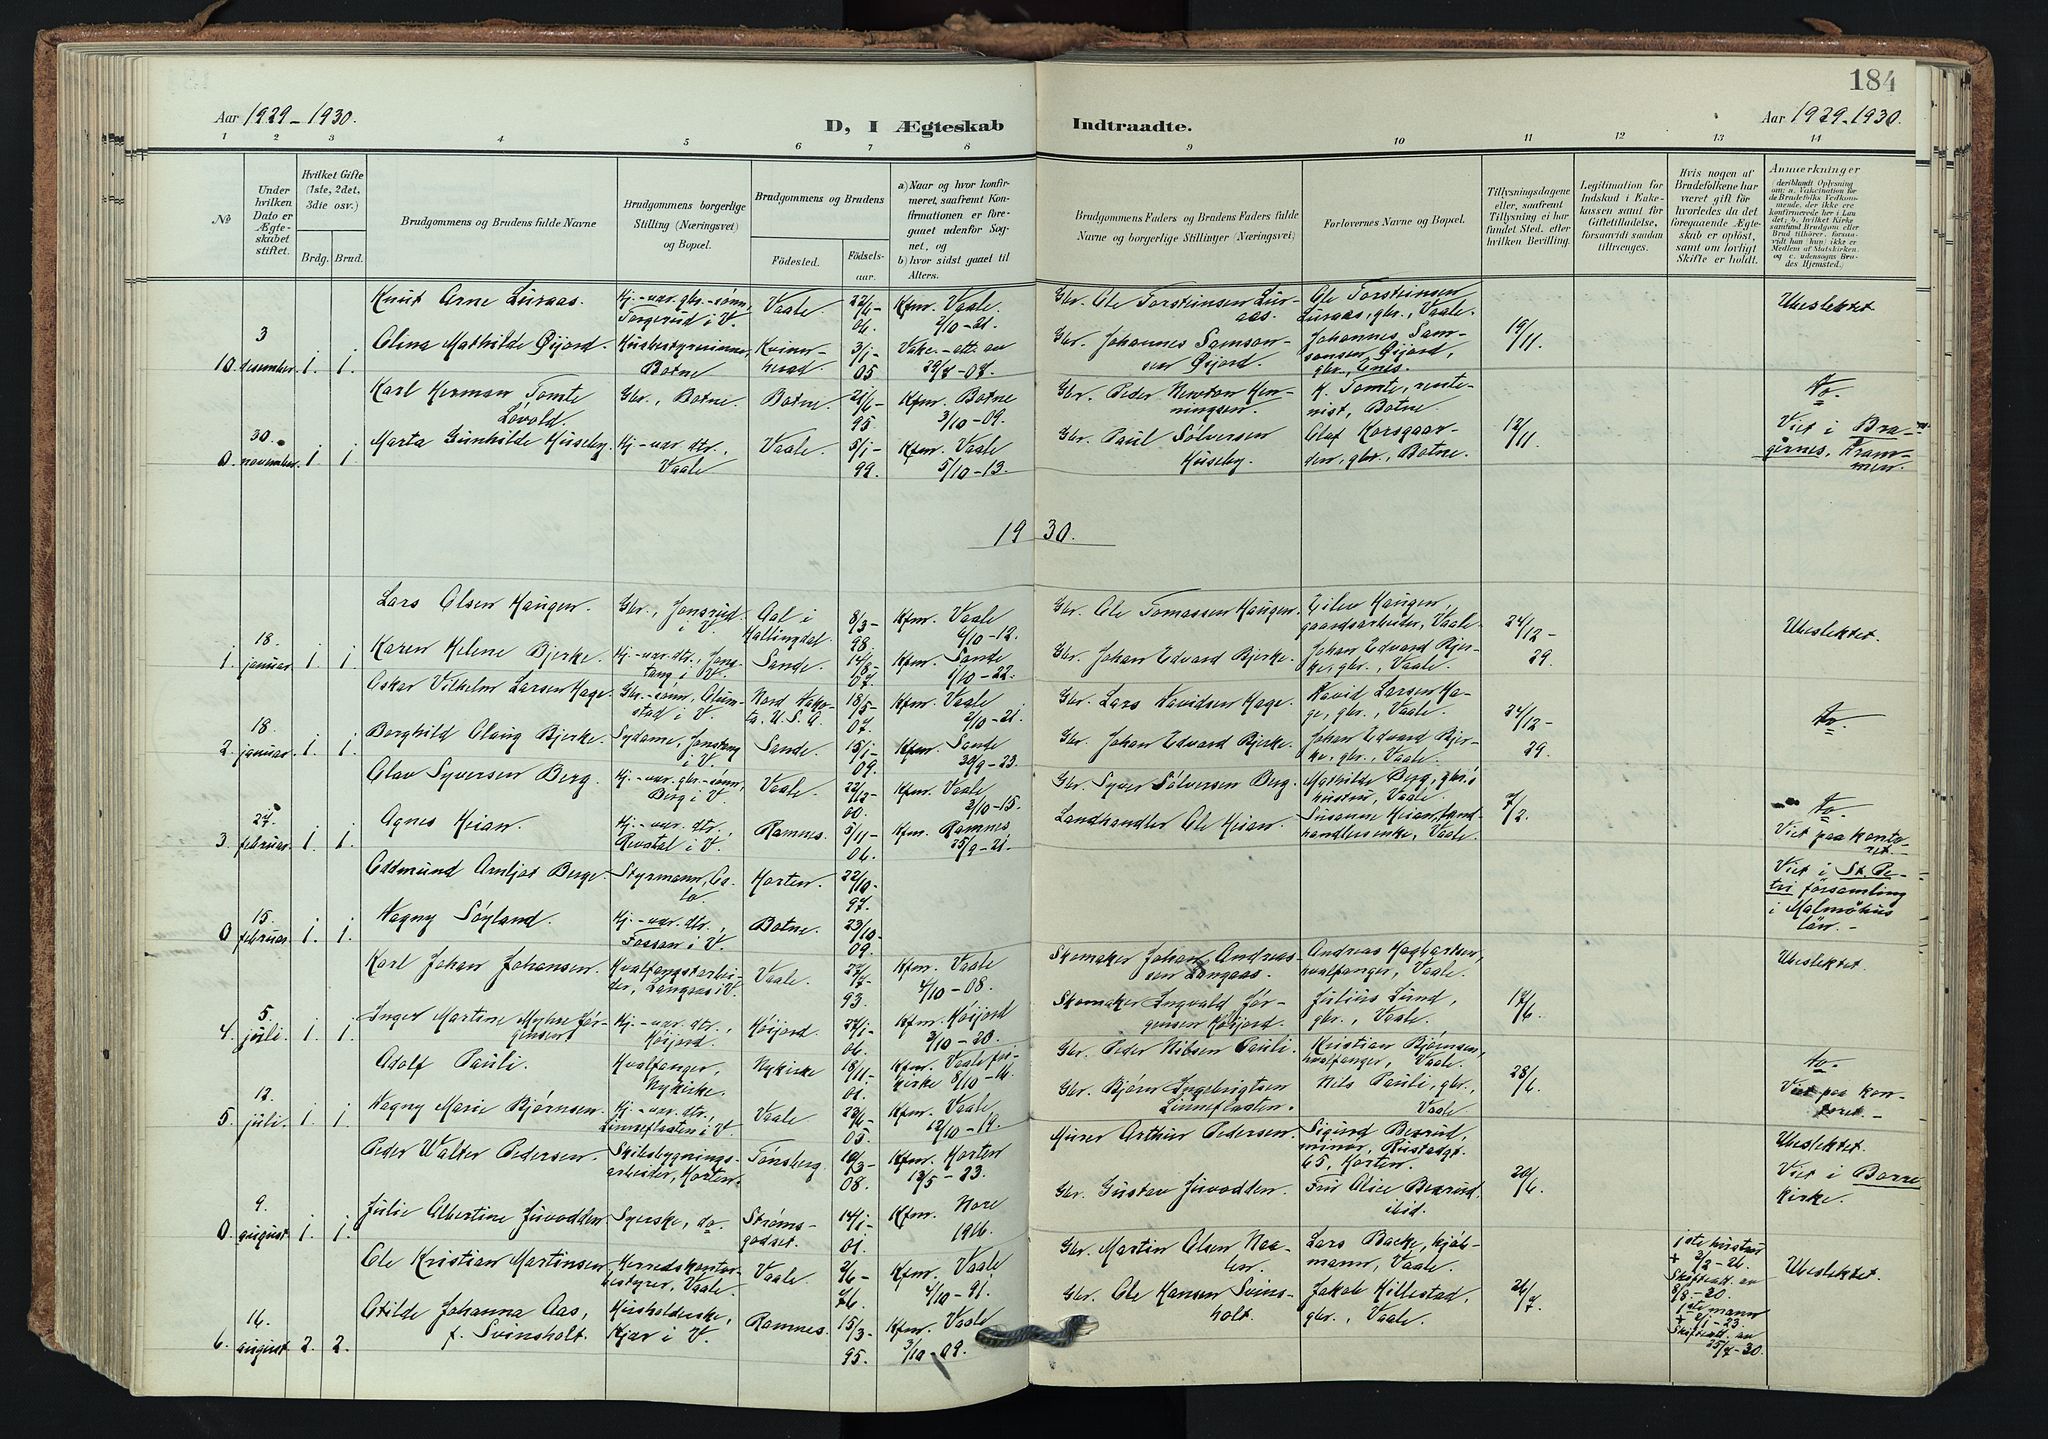 184
Aar 1929-1930.
D, I Ægteskab
Indtraadte.
Aar 1929-1930.
1 2 3 4 5 6 7 8 9 10 11 12 13 14
№
Under
hvilken
Dato er
Ægte-
skabet
stiftet.
Hvilket Gifte
(1ste, 2det,
3die osv.)
Brdg. Brud.
Brudgommens og Brudens fulde Navne
Brudgommens borgerlige
Stilling (Næringsvei)
og Bopæl.
Brudgommens og Brudens
Födested.
Födsels-
aar.
a) Naar og hvor konfir-
meret, saafremt Kon-
firmationen er fore-
gaaet udenför Sog-
net, og
b) hvor sidst gaaet til
Alters.
Brudgommens Faders og Brudens Faders fulde
Navne og borgerlige Stillinger (Næringsvei)
Forlovernes Navne og Bopæl.
Tillysningsdagene
eller, saafremt
Tillysning ei har
fundet Sted, efter
hvilken Bevilling.
Legitimation for
Indskud i Enke-
kassen samt for
Giftetilladelse,
forsaavidt saadan
tiltrænges.
Hvis nogen af
Brudefolkene har
været gift för
hvorledes da det
foregaaende Ægte-
skab er oplöst,
samt om lovligt
Skifte er holdt.
Anmerkninger
(deriblandt Oplysning
om: a. Vakcination for
de Brudefolks Vedkom-
mende, der ikke ere
konfirmerede her i Lan
det; b. hvilket Kirke
samfund Brudgom eller
Brud tilhörer, forsaa-
vidt han (hun) ikke er
Medlem af Statskirken.
og c. udensogns Bru-
des Hjemsted.)
Knut Arne Luraas.
Hj.-vær. gbr.-sønn,
Torgerud i V.
Vaale
22/6-
06.
Kfm. Vaale
2/10-21.
Gbr. Ole Torsteinsen Lur-
aas.
Ole Torsteinsen
Luraas, gbr., Vaale.
Ubeslektet
10. 3 desember. 1. 1.
Olina Mathilde Øijord.
Husbestyrerinne,
Botne
Kvinn-
herad
3/1-
05
Vakc.-att. av
Gbr. Johannes Samson-
sen Øijord.
Johannes Sam-
sonsen Øijord,
gbr., Enes.
19/11.
Karl Herman Tomte
Løvald.
Gbr., Botne.
Botne.
21/6-
95
Kfm. Botne
3/10-09.
Gbr. Peder Newton Hen-
ningsen.
H. Tomte, rente-
nist, Botne.
do.
0. 30. november. 1 1
Marta Gunhilde Huseby.
Hj.-vær. dtr.,
Vaale
Vaale.
5/1-
99.
Kfm. Vaale
5/10-13.
Gbr. Paul Sølversen
Huseby.
Olaf Korsgaar-
den, gbr., Botne.
12/11.
Viet i Bra-
gernes, Dram-
men.
1930.
Lars Olsen Haugen.
Gbr., Jonsrud
i V.
Aal i
Hallingdal.
8/3-
98.
Kfm. Vaale
6/10-12.
Gbr. Ole Tomassen Haugen.
Eilev Haugen,
gaardsarbeider, Vaale.
24/12-
29.
Ubeslektet.
1. 18. januar. 1. 1.
Karen Helene Bjerke.
Hj.-vær. dtr.,
Sande.
14/8-
07.
Kfm. Sande
1/10-22.
Gbr. Johan Edvard Bjerke.
Johan Edvard Bjer-
ke, gbr., Vaale.
Oskar Vilhelm Larsen Hage.
Gbr.-sønn,
Nord Dako-
ta. U.S.A.
18/5-
07.
Kfm. Vaale
2/10-21.
Gbr. Lars Davidsen Hage.
David Larsen Ha-
ge, gbr., Vaale.
24/12-
29.
do.
2. 18. januar. 1. 1.
Borghild Olaug Bjerke.
Sydame,
i V.
Sande.
15/1-
09.
Kfm. Sande
30/9-23.
Gbr. Johan Edvard Bjerke.
Johan Edvard Bjer-
ke, gbr., Vaale.
Olav Syversen Berg.
Hj.-vær. gbr.-sønn,
Berg i V.
Vaale.
22/12-
00.
Kfm. Vaale
3/10-15.
Gbr. Syver Sølversen Berg.
Mathilde Berg, gbr.s
hustru, Vaale.
do.
3. 27. februar. 1. 1.
Agnes Heian.
Hj.-vær. dtr.,
Revetal i V.
Ramnes.
5/11-
06.
Kfm. Ramnes
25/9-21.
Landhandler Ole Heian.
Susanne Heian, land-
handlerenke, Vaale.
7/2.
Viet paa konto-
ret.-
Oddmund Arnljot Berge.
Styrmann, Os-
lo.
Horten.
22/10-
97.
Viet i St. Pe-
tri församling
i Malmöhus
län.-
0 15. februar. 1. 1.
Dagny Søyland.
Hj.-vær. dtr.,
Fossan i V.
Botne.
23/10-
09.
Karl Johan Johansen.
Hvalfangstarbei-
der, Langaas i V.
Vaale.
27/7-
93.
Kfm. Vaale
4/10-08.
Skomaker Johan Andreas-
sen Langaas.
Andreas Hagbartsen,
hvalfanger, Vaale.
Ubeslektet.
4. 5. juli. 1. 1.
Inger Martine Myhre Jør-
gensen.
Hj.-vær. dtr.,
Høijord.
Høijord.
27/1-
06.
Kfm. Høijord
3/10-20.
Skomaker Ingvald Jør-
gensen Høijord.
Julius Lund,
gbr., Vaale.
17/6.
Adolf Pauli.
Hvalfanger,
Nykirke.
Nykirke
18/11-
01.
Kfm. Vaale for-
kirke 8/10-16.
Gbr. Peder Nilsen Pauli.
Kristian Bjørnsen,
hvalfanger, Vaale.
do.
5. 12. juli. 1. 1.
Dagny Marie Bjørnsen.
Hj.-vær. dtr.,
Linneflaaten i V.
Vaale
23/6-
05.
Kfm. Vaale
12/10-19.
Gbr. Bjørn Ingebrigtsen
Linneflaaten.
Nils Pauli, gbr.,
Vaale
28/6.
Viet paa kon-
toret.-
Peder Walter Pedersen.
Skibsbygnings-
arbeider, Horten.
Tønsberg.
10/3-
08.
Kfm. Horten
13/5-23.
Murer Arthur Pedersen.
Sigurd Bexrud,
minør, Rustadgt.
65, Horten.
Ubeslektet.
Viet i Borre
kirke.
0. 9. august. 1. 1.
Julie Albertine Juvodden.
Syerske, do.
Strøms-
godset.
14/1-
01.
Kfm. Nore
1916.
Gbr. Gustav Juvodden.
Fru Alice Bexrud
ibid.
20/6.
Ole Kristian Martinsen.
Herredskontor-
bestyrer, Vaale.
Vaale.
2/6-
76.
Kfm. Vaale
4/10-91.
Gbr. Martin Olsen
Lars Backe, hjels-
mann, Vaale.
1ste hustru
+ 3/2-26.
Skifteatt. av
Ubeslektet.
6. 16. august. 2. 2.
Otilde Johanna Aas,
f. Svinsholt.
Husholderske,
Kjær i V.
Ramnes.
15/3-
95.
Kfm. Vaale
3/10-09.
Gbr. Ole Hansen Svins-
holt.
Jakob Hillestad,
gbr., Vaale.
26/7.
1ste mann
Skifteatt. av
25/7-30.